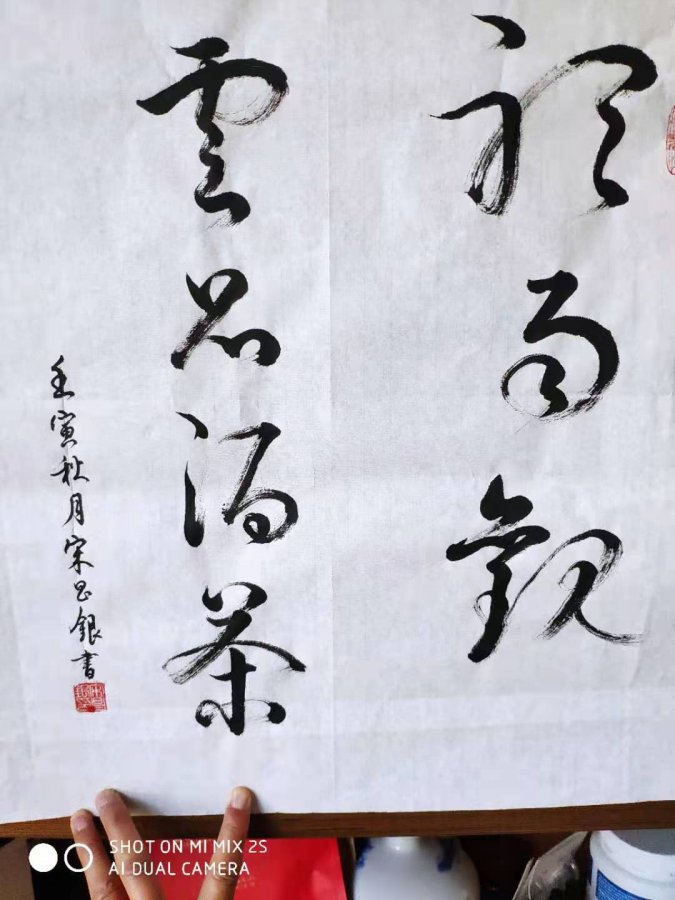 听雨观
云品酒茶
壬寅秋月宋昌銀書
SHOT ON MI MIX 2S
AI DUAL CAMERA